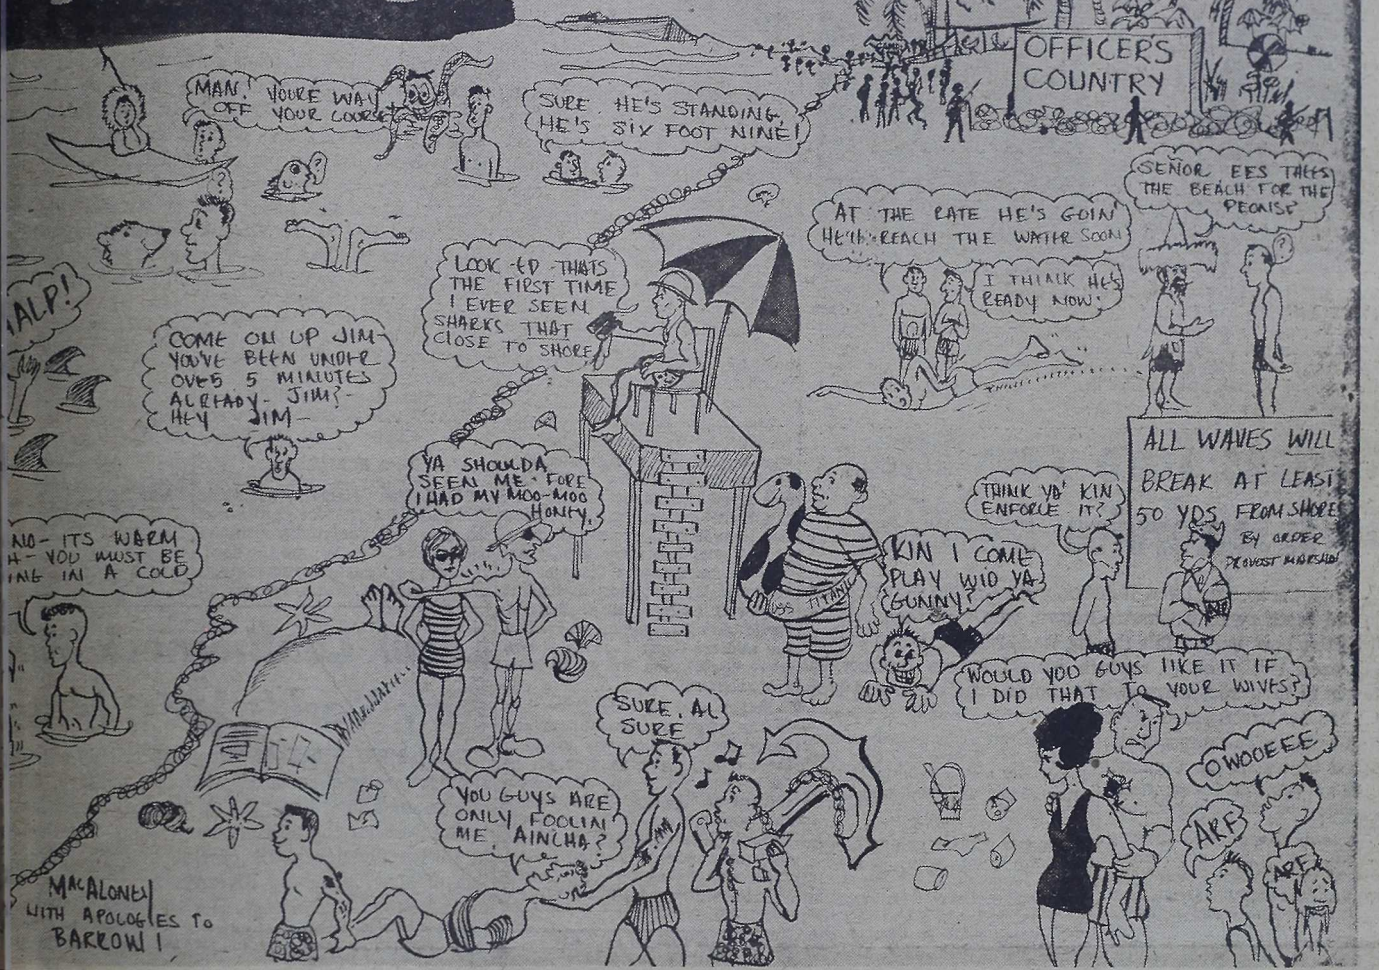 OFFICER'S
COUNTRY
MAN! YOURE WAY
OFF YOUR COURSE
SURE HE'S STANDING,
HE'S SIX FOOT NINE!
SEÑOR EES THEES
THE BEACH FOR THE
PEONS?
AT THE RATE HE'S GOIN'
HE'LL REACH THE WATER SOON
I THINK HE'S
READY NOW!
LOOK ED THATS
THE FIRST TIME
I EVER SEEN
SHARKS THAT
CLOSE TO SHORE
HALP!
COME ON UP JIM
YOU'VE BEEN UNDER
OVER 5 MINUTES
ALREADY- JIM?-
HEY JIM-
ALL WAVES WILL
BREAK AT LEAST
50 YDS FROM SHORE
BY ORDER
PROVOST MARSHAL
YA SHOULDA
SEEN ME FORE
I HAD MY MOO-MOO
HONEY.
THINK YA' KIN
ENFORCE IT?
NO- ITS WARM
H- YOU MUST BE
ING IN A COLD
KIN I COME
PLAY WID YA
GUNNY?
USS TITANIC
WOULD YOU GUYS LIKE IT IF
I DID THAT TO YOUR WIVES?
SURE, AL
SURE
OWOOEEE
YOU GUYS ARE
ONLY FOOLIN
ME, AINCHA?
ARF
ARF
MACALONEY
WITH APOLOGIES TO
BARROW!